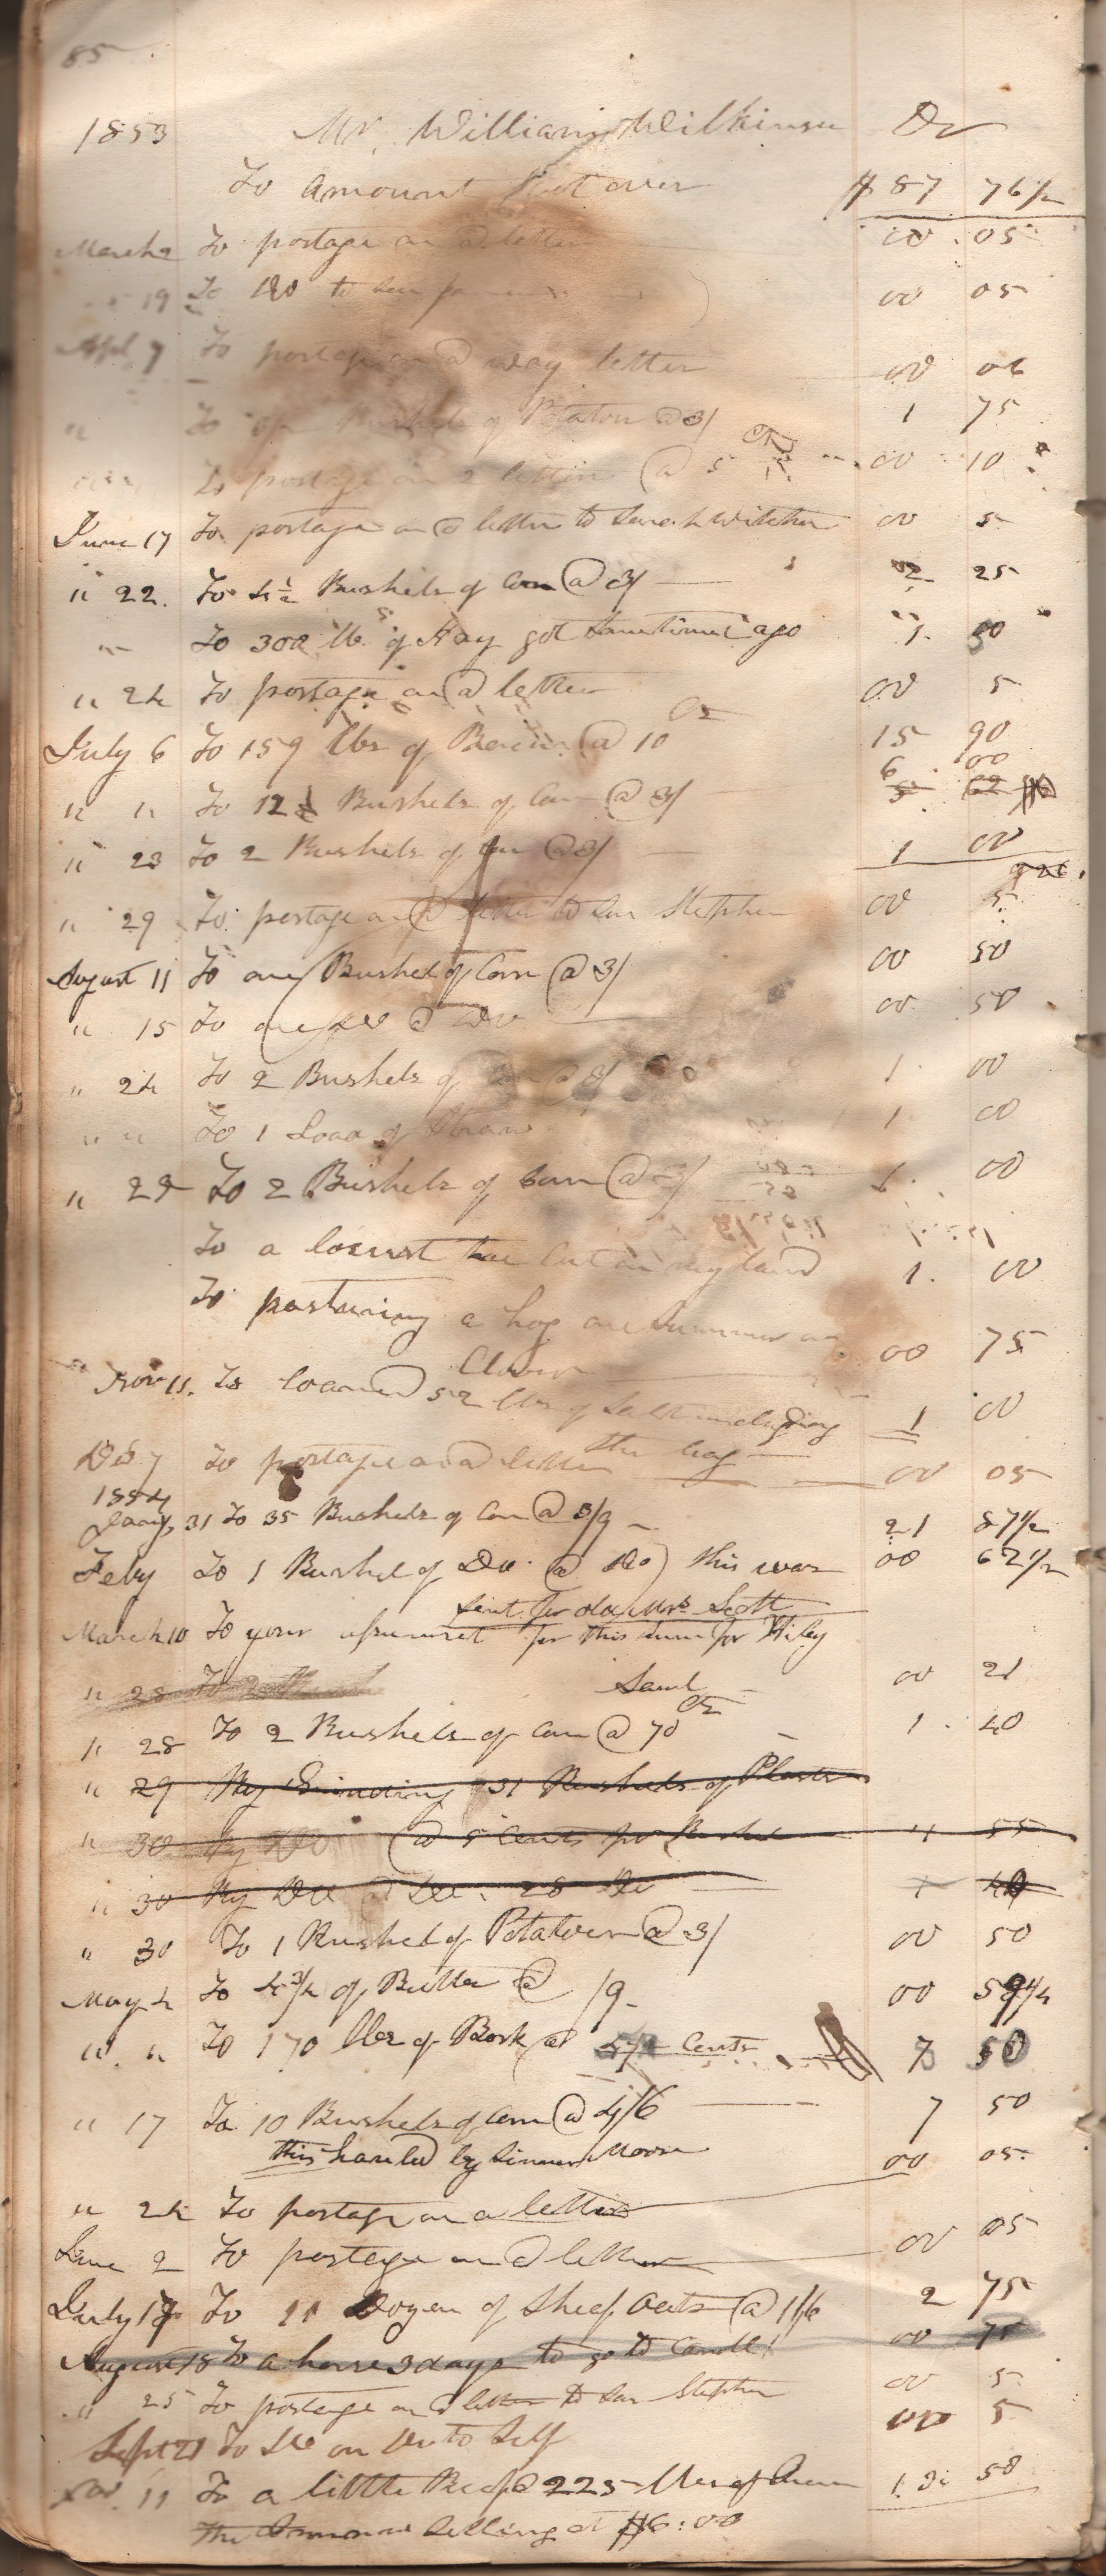 85
1853 Mr. William Wilkinson Dr
To amount brot over $87 76 1/2
March 2 To postage on a letter 00 . 05
" 19 To Do to 00 05
Apl 7 To postage on a way letter 00 06
" To Bushels of Potatoes @ 3/ 1 75
To postage on 2 letters @ 5 Cts 00 10
June 17 To postage on a letter to Sarah Witcher 00 5
" 22. To 4 1/2 Bushels of Corn @ 3/ 2 25
" To 300 lbs of Hay got sometime ago 1. 50
" 24 To postage on a letter 00 5
July 6 To 159 lbs of Bacon @ 10 Cts 15 90
6 00
" " To 12 Bushels of Corn @ 3/ 5 62
" 23 To 2 Bushels of Corn @ 3/ 1 00
" 29 To postage on a letter to son Stephen 00 5
August 11 To one Bushel of Corn @ 3/ 00 50
" 15 To one Do @ Do 00 50
" 24 To 2 Bushels of Corn @ 3/ 1 00
" " To 1 Load of Straw 1 00
" 29 To 2 Bushels of Corn @ 3/ 1. 00
To a locust tree cut on my land 1. 00
To pasturing a hog one Summer on
Clover 00 75
Nov 11. To loaned 52 lbs of Salt including
the bag 1 00
Dec 7 To postage on a letter 00 05
1854
Jany 31 To 35 Bushels of Corn @ 3/9 21 87 1/2
Feby To 1 Bushel of Do @ Do) this was 00 62 1/2
sent for old Mrs Scott
March 10 To your assumset for this sum for Wiley
Saml 00 21
" 28 To 2
" 28 To 2 Bushels of Corn @ 70 Cts 1. 40
" 29 By Grinding 31 Bushels of Plaster
" 30 By Do @ 5 Cents per Bushel 1 55
" 30 By Do @ Do. 28 Do 1 40
" 30 To 1 Bushel of Potatoes @ 3/ 00 50
May 4 To 4 3/4 of Butter @ /9 00 59 1/4
" " To 170 lbs of Pork at Cents 7 50
" 17 To 10 Bushels of Corn @ 4/6 7 50
this hauled by Simeon Moore
" 24 To postage on a letter 00 05
June 2 To postage on a letter 00 05
July 17 To 11 Dozen of Sheaf Oats @ 1/6 2 75
August 18 To a horse 3 days to go to Candle 00 75
" 25 To postage on a letter to son Stephen 00 5
Sept 21 To Do on Do to Self 00 5
Nov. 11 To a little Beef @ 225 lbs of 13 50
selling at $6:00